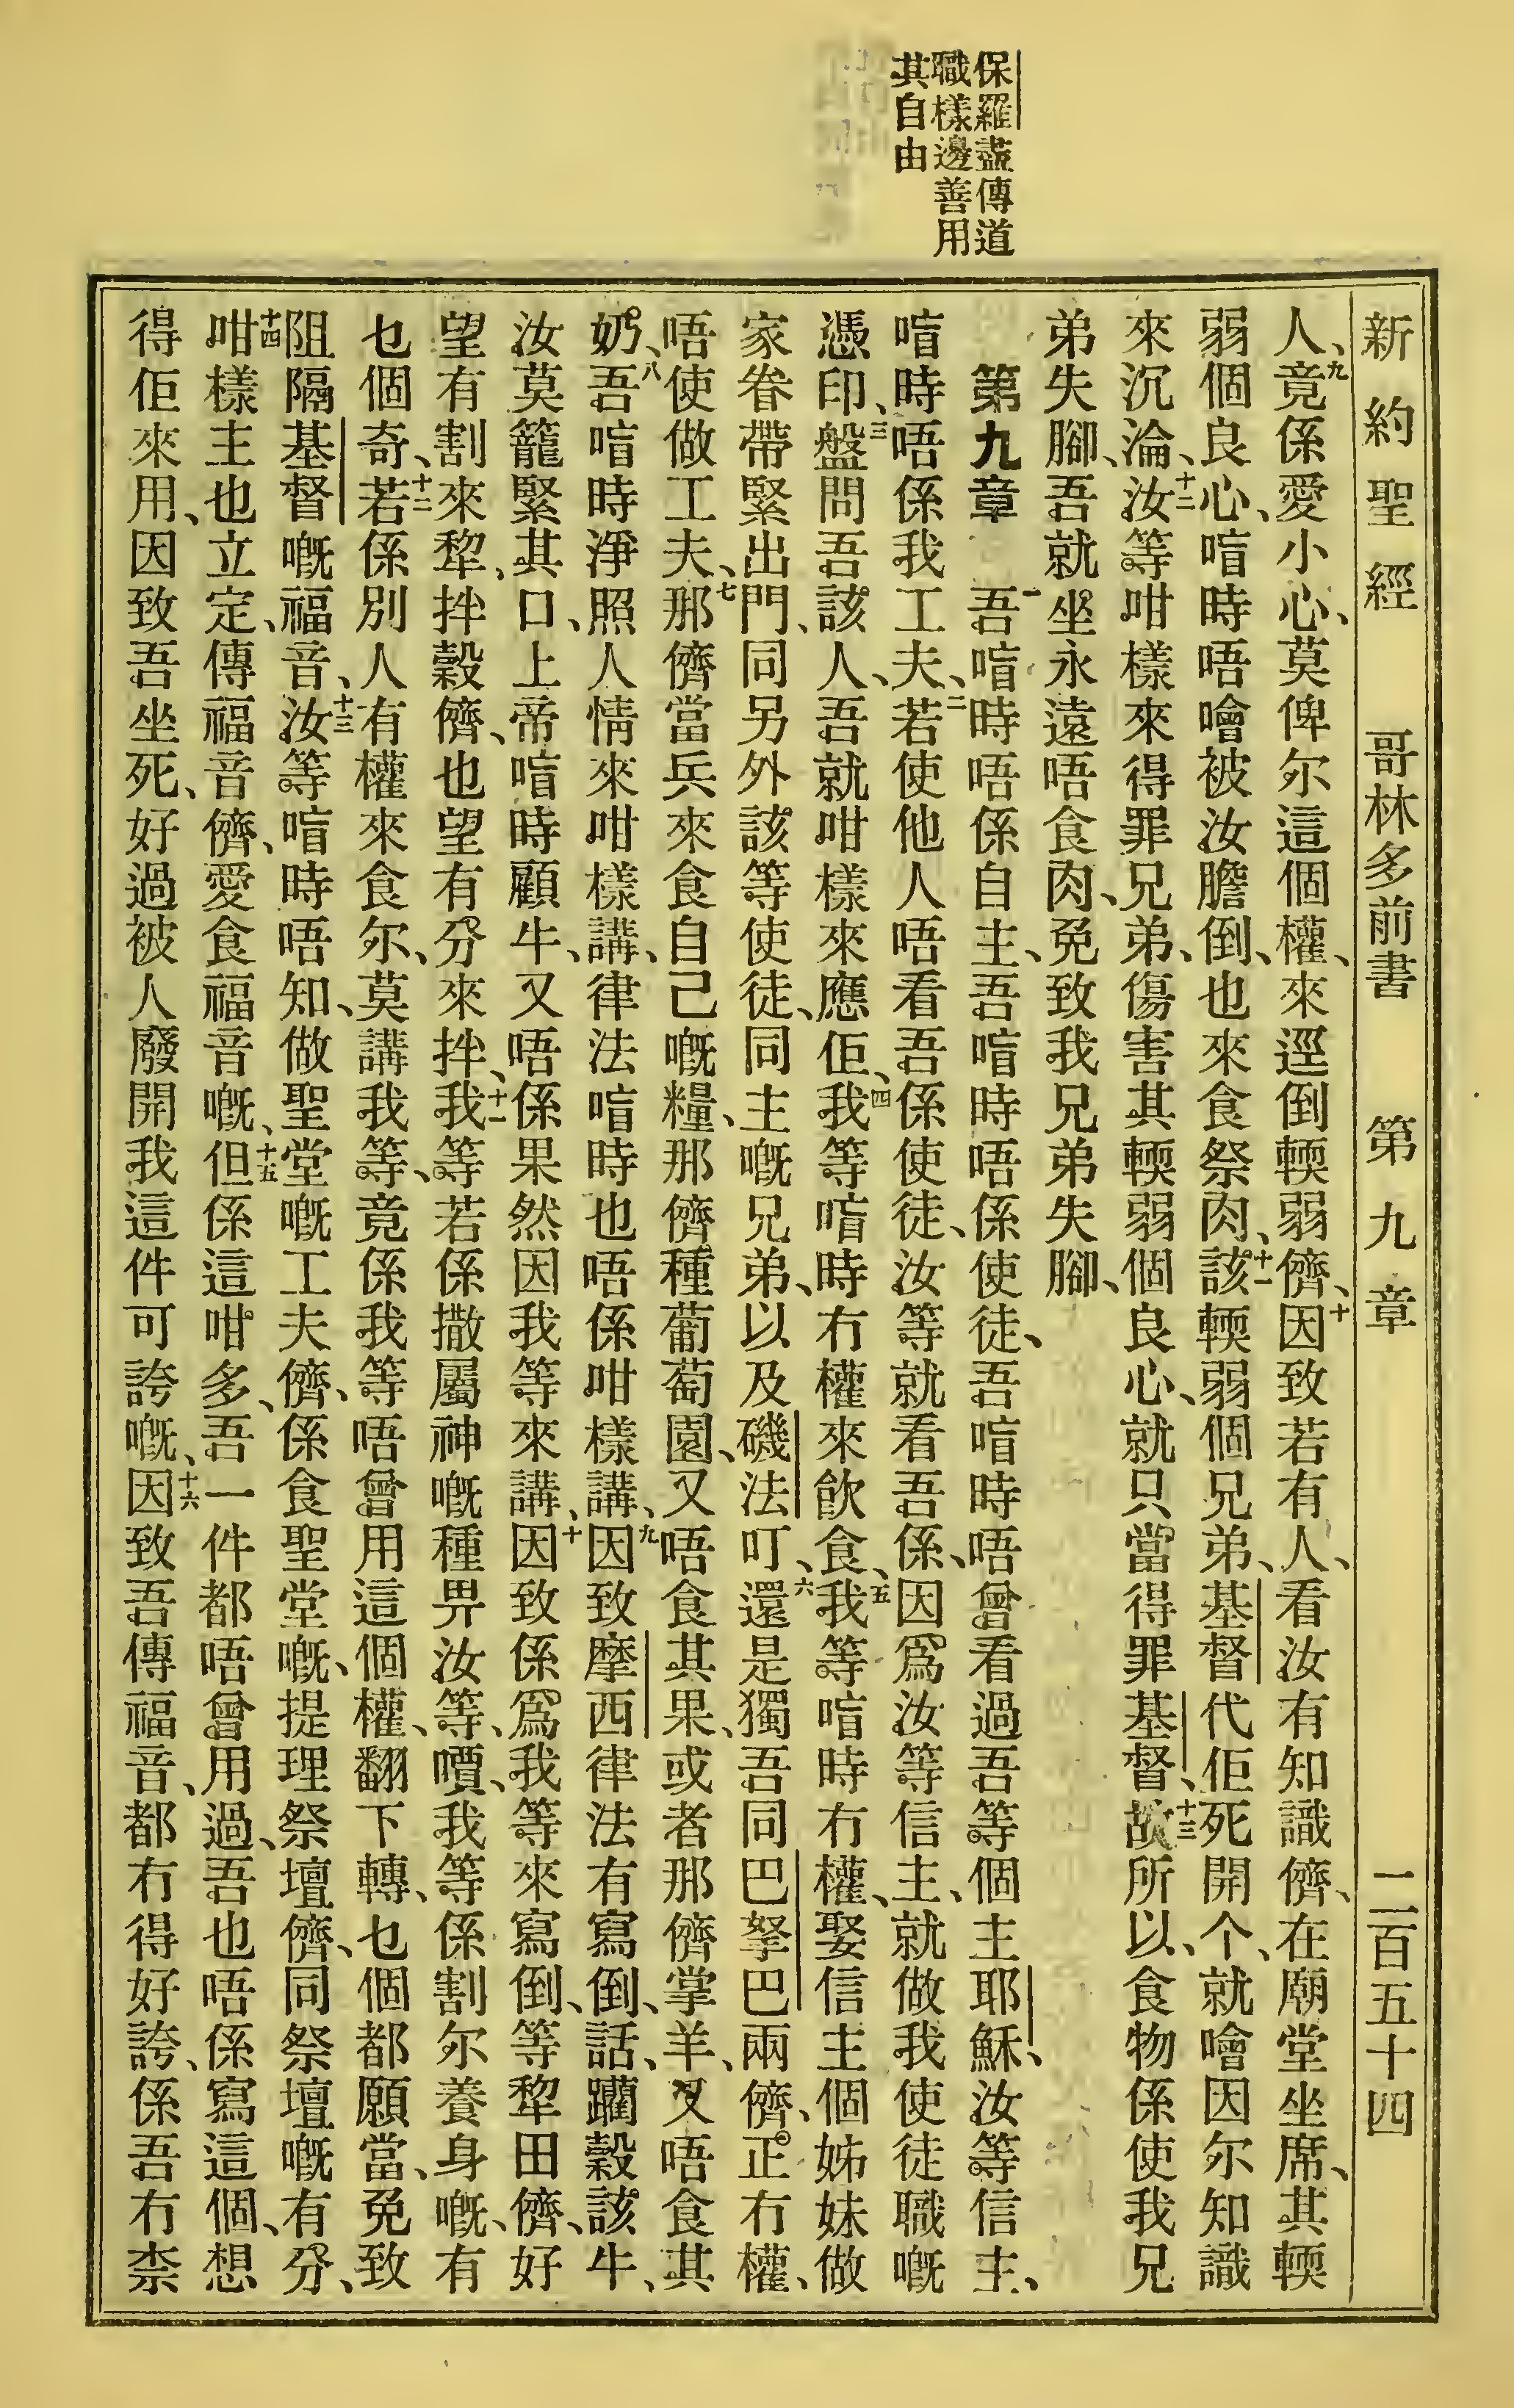 保羅盡傳道
職樣邊善用
其自由
新約聖經 哥林多前書 第九章 二百五十四
人、九竟係愛小心、莫俾尔這個權、來逕倒輭弱儕、十因致若有人、看汝有知識儕、在廟堂坐席、其輭
弱個良心、㫾時唔噲被汝膽倒、也來食祭肉、十一該輭弱個兄弟、基督代佢死開个、就噲因尔知識
來沉淪、十二汝等咁樣來得罪兄弟、傷害其輭弱個良心、就只當得罪基督、十三故所以、食物係使我兄
弟失腳、吾就坐永遠唔食肉、免致我兄弟失腳、
第九章 一吾㖡時唔係自主、吾㖡時唔係使徒、吾㖡時唔曾看過吾等個主耶穌、汝等信主、
㖡時唔係我工夫、二若使他人唔看吾係使徒、汝等就看吾係、因爲汝等信主、就做我使徒職嘅
憑印、三盤問吾該人、吾就咁樣來應佢、四我等㖡時冇權來飲食、五我等㖡時冇權、娶信主個姊妹做
家眷帶緊出門、同另外該等使徒、同主嘅兄弟、以及磯法叮、六還是獨吾同巴拏巴兩儕、正冇權、
唔使做工夫、七那儕當兵來食自己嘅糧、那儕種葡萄園、又唔食其果、或者那儕掌羊、又唔食其
奶、八吾㖡時淨照人情來咁樣講、律法㖡時也唔係咁樣講、九因致摩西律法有寫倒、話、躪穀該牛、
汝莫籠緊其口、上帝㖡時顧牛、又唔係果然因我等來講、十因致係爲我等來寫倒、等犂田儕、好
望有割來犂、拌穀儕、也望有分來拌、十一我等若係撒屬神嘅種畀汝等、嘪、我等係割尔養身嘅、有
乜個奇、十二若係別人有權來食尔、莫講我等、竟係我等唔曾用這個權、翻下轉、乜個都願當、免致
阻隔基督嘅福音、十三汝等㖡時唔知、做聖堂嘅工夫儕、係食聖堂嘅、提理祭壇儕、同祭壇嘅有分、
十四咁樣主也立定、傳福音儕、愛食福音嘅、十五但係這咁多、吾一件都唔曾用過、吾也唔係寫這個、想
得佢來用、因致吾坐死、好過被人廢開我這件可誇嘅、十六因致吾傳福音、都冇得好誇、係吾冇柰